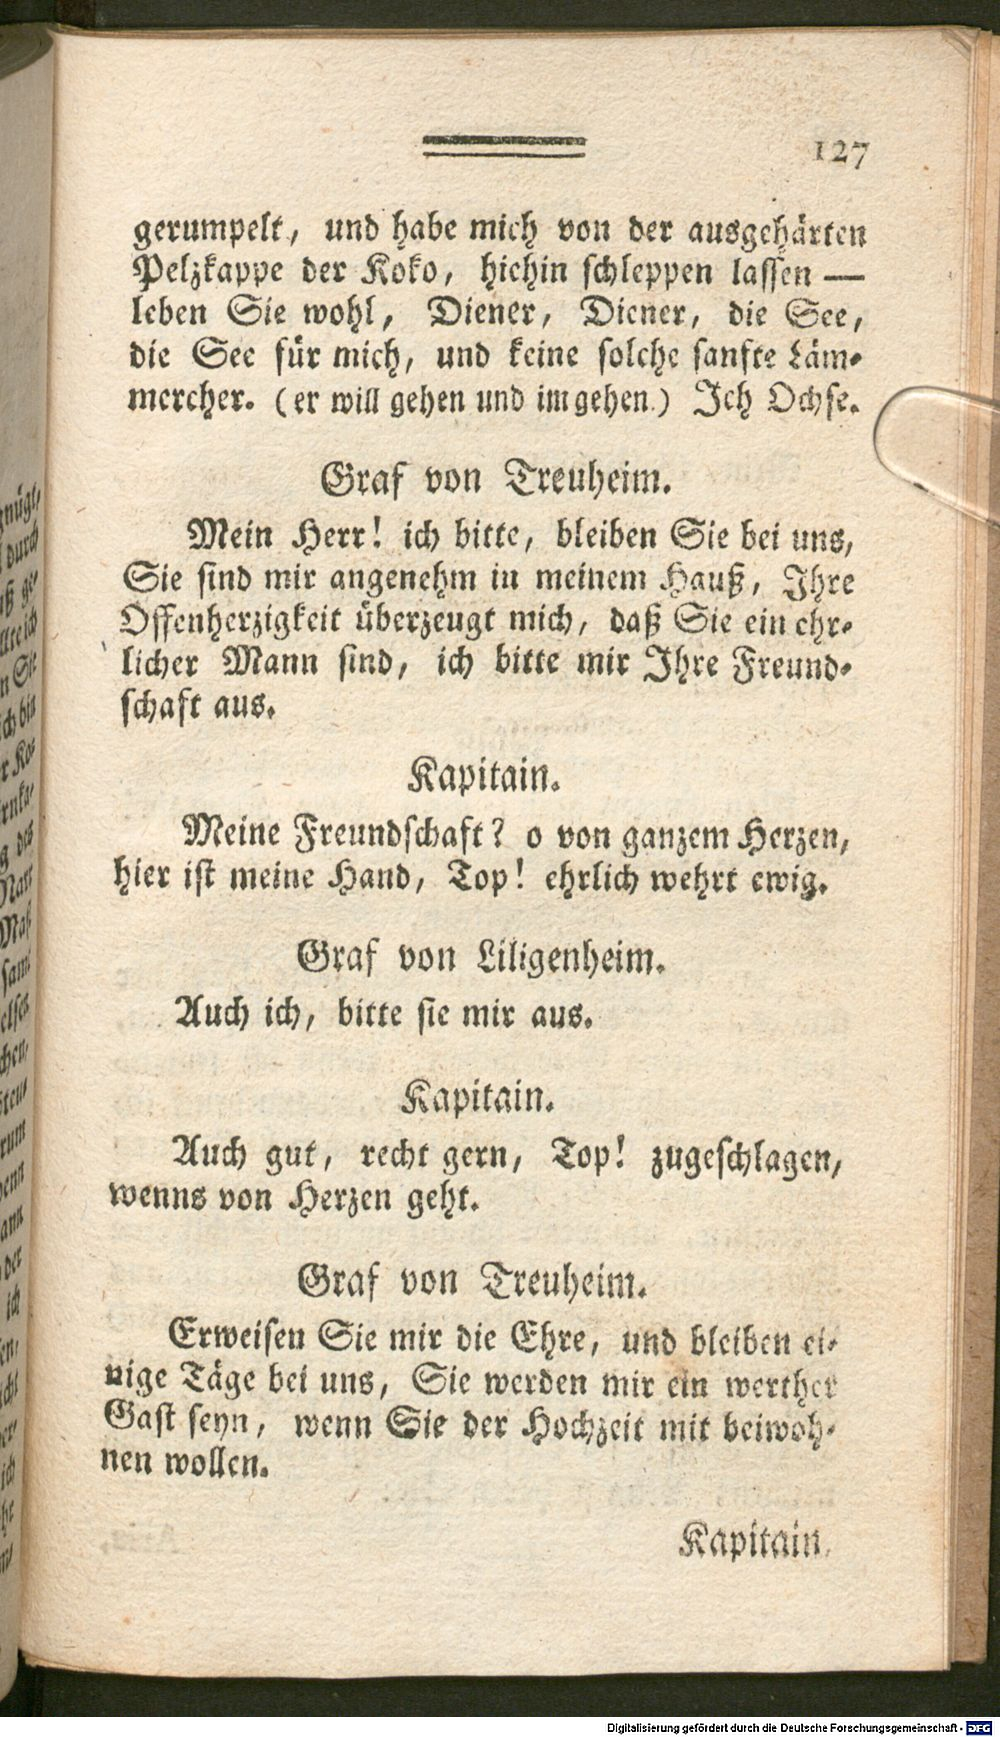 127
gerumpelt, und habe mich von der ausgehärten
Pelzkappe der Koko, hiehin schleppen lassen —
leben Sie wohl, Diener, Diener, die See,
die See für mich, und keine solche sanfte Läm-
mercher. (er will gehen und im gehen.) Ich Ochse.
Graf von Treuheim.
Mein Herr! ich bitte, bleiben Sie bei uns,
Sie sind mir angenehm in meinem Hauß, Ihre
Offenherzigkeit überzeugt mich, daß Sie ein ehr-
licher Mann sind, ich bitte mir Ihre Freund-
schaft aus.
Kapitain.
Meine Freundschaft? o von ganzem Herzen,
hier ist meine Hand, Top! ehrlich wehrt ewig.
Graf von Liligenheim.
Auch ich, bitte sie mir aus.
Kapitain.
Auch gut, recht gern, Top! zugeschlagen,
wenns von Herzen geht.
Graf von Treuheim.
Erweisen Sie mir die Ehre, und bleiben ei-
nige Täge bei uns, Sie werden mir ein werther
Gast seyn, wenn Sie der Hochzeit mit beiwoh-
nen wollen.
Kapitain.
Digitalisierung gefördert durch die Deutsche Forschungsgemeinschaft - DFG